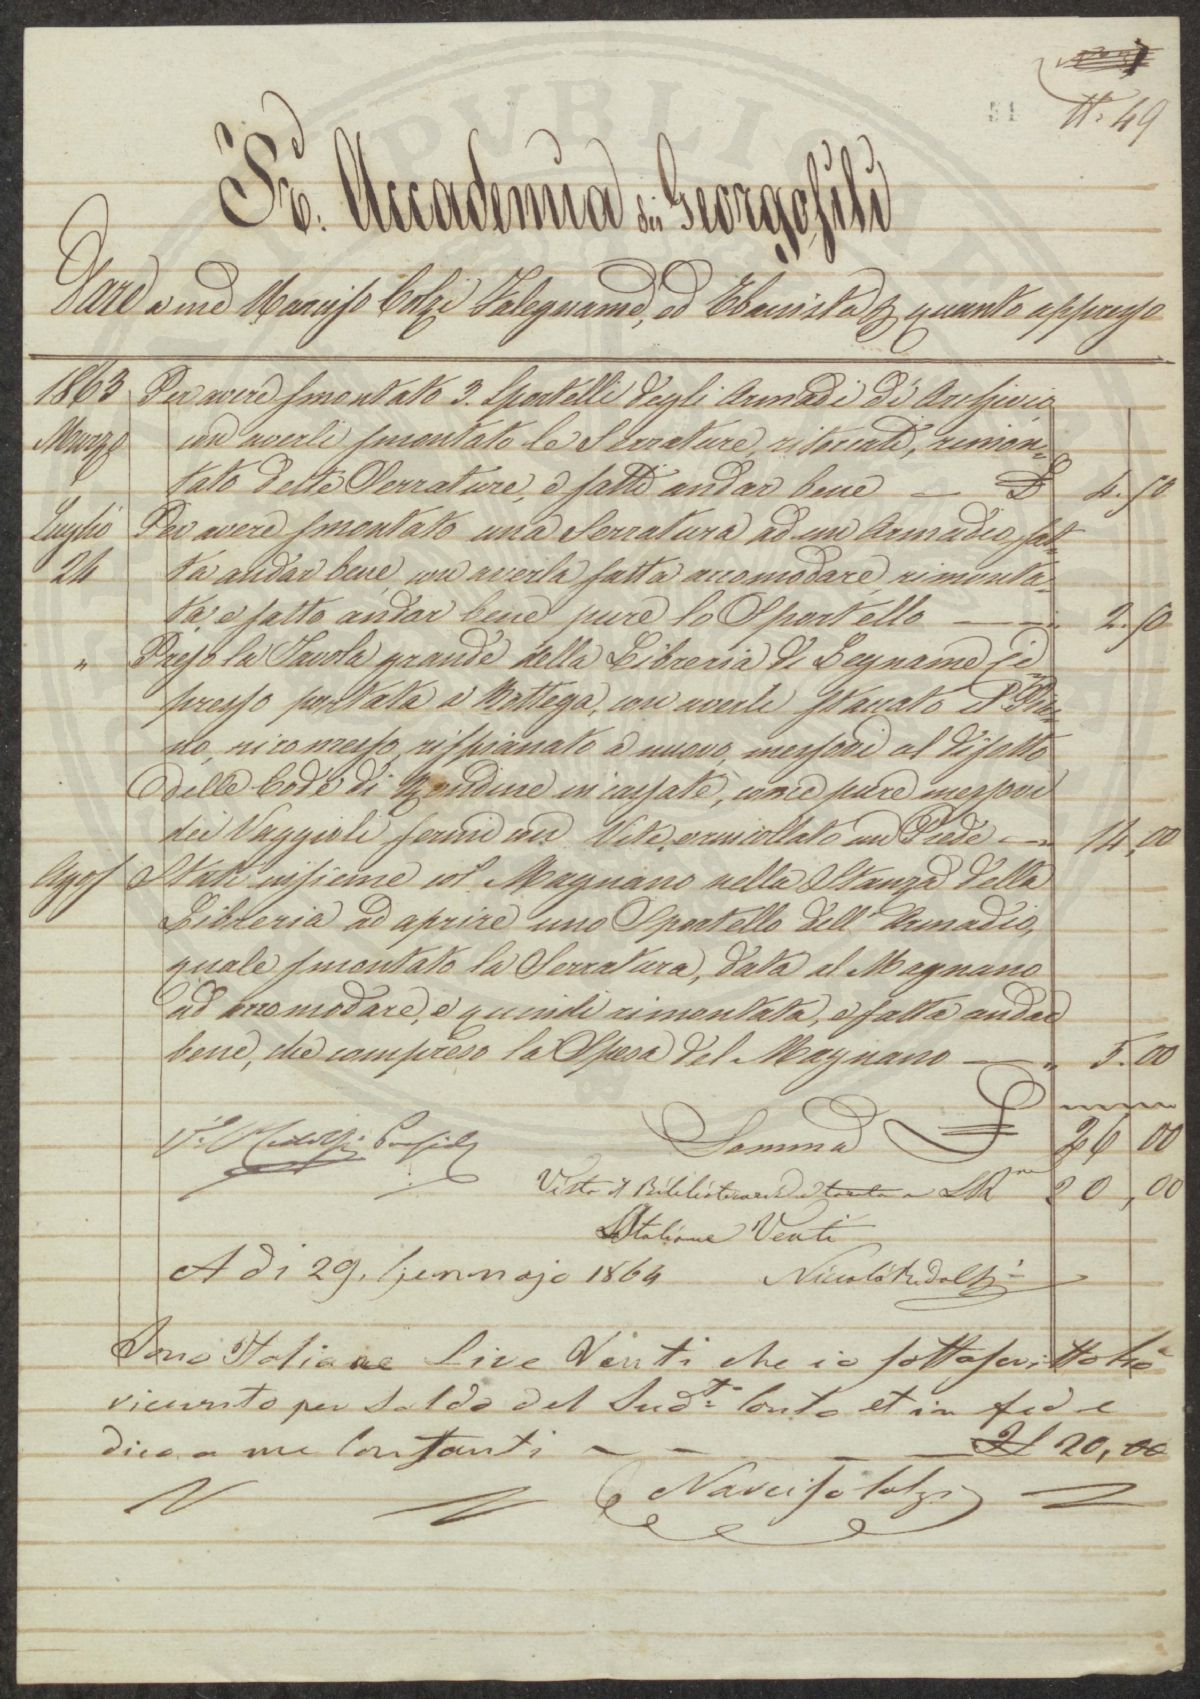 N. 49
51
I. e R. Accademia dei Georgofili
Dare a me Narciso Colzi Falegname, ed Ebanista p quanto appresso
1863 Per avere smontato 3. Sportelli degli Armadi di Archivio
Marzo con averli smontato le Serrature, ritoccate, rimon=
tato dette Serrature, e fatti andar bene — £ 4. 50
Luglio Per avere smontato una Serratura ad un Armadio, fat=
24 ta andar bene con averla fatta accomodare, rimonta=
ta, e fatto andar bene pure lo Sportello — " 2. 50
" Preso la Tavola grande della Libreria di Legname
presso portata a Bottega, con averli staccato il Pia=
no, ricommesso, rispianato a nuovo, messovi al disotto
delle Code di Rondine incassate, come pure messovi
dei Vaggioli fermi con Vite, e rincollato un Piede — " 14, 00
Agos Stato insieme col Magnano nella Stanza della
Libreria ad aprire uno Sportello dell' Armadio,
quale smontato la Serratura, data al Magnano
ad accomodare, e quindi rimontata, e fatta andar
bene, che compreso la Spesa del Magnano — " 5. 00
Somma £ 26 00
Visto Il Bibliotecario tarato a 20, 00
Italiane Venti
A di 29. Gennajo 1864 Niccolò Ridolfi
Sono Italiane Lire Venti che io sottoscritto ho
ricevuto per Saldo del Sud.to Conto et in fede
dico a me Contanti — — — £ 20, 00
Narciso Colzi